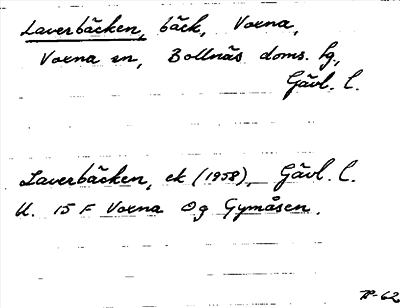 Laverbäcken, bäck, Voxna,
Voxna sn, Bollnäs doms. hg,
Gävl. l.
Laverbäcken, ek (1958), Gävl. l.
U. 15 F Voxna Og Gymåsen.
-62